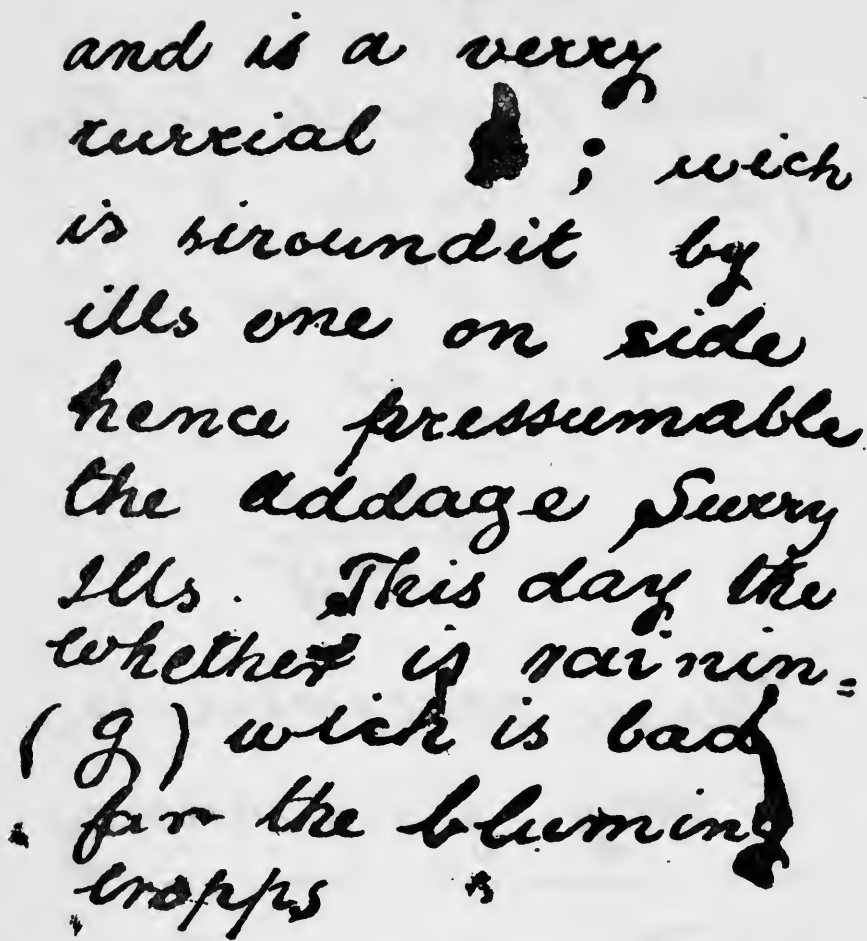 and is a verry
rurrial ; wich
is siroundit by
ills one on side
hence pressumable
the addage Surry
Ills. This day the
whether is rainin=
(g) wich is bad
far the bluming
cropps